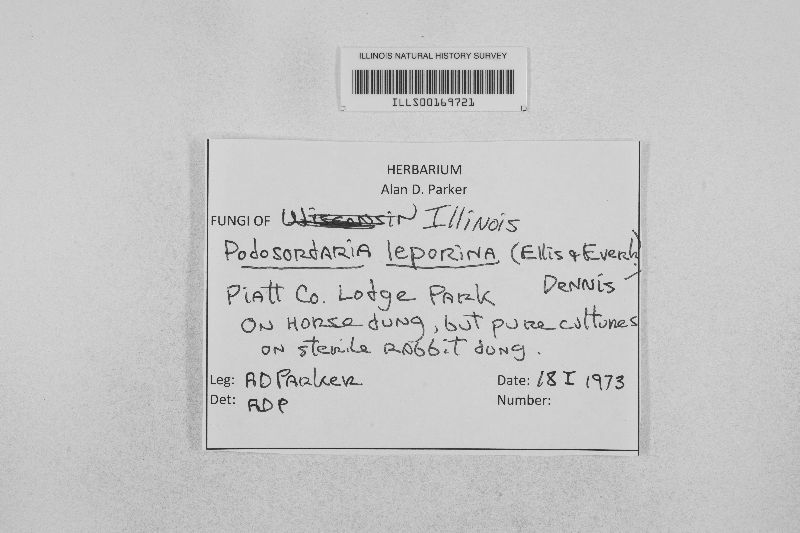 ILLINOIS NATURAL HISTORY SURVEY
ILLS00169721
HERBARIUM
Alan D. Parker
FUNGI OF Wisconsin Illinois
Podosordaria leporina (Ellis & Everh)
Dennis
Piatt Co. Lodge Park
on Horse dung, but pure cultures
on sterile Rabbit dung.
Leg: ADParker Date: 18 I 1973
Det: ADP Number: